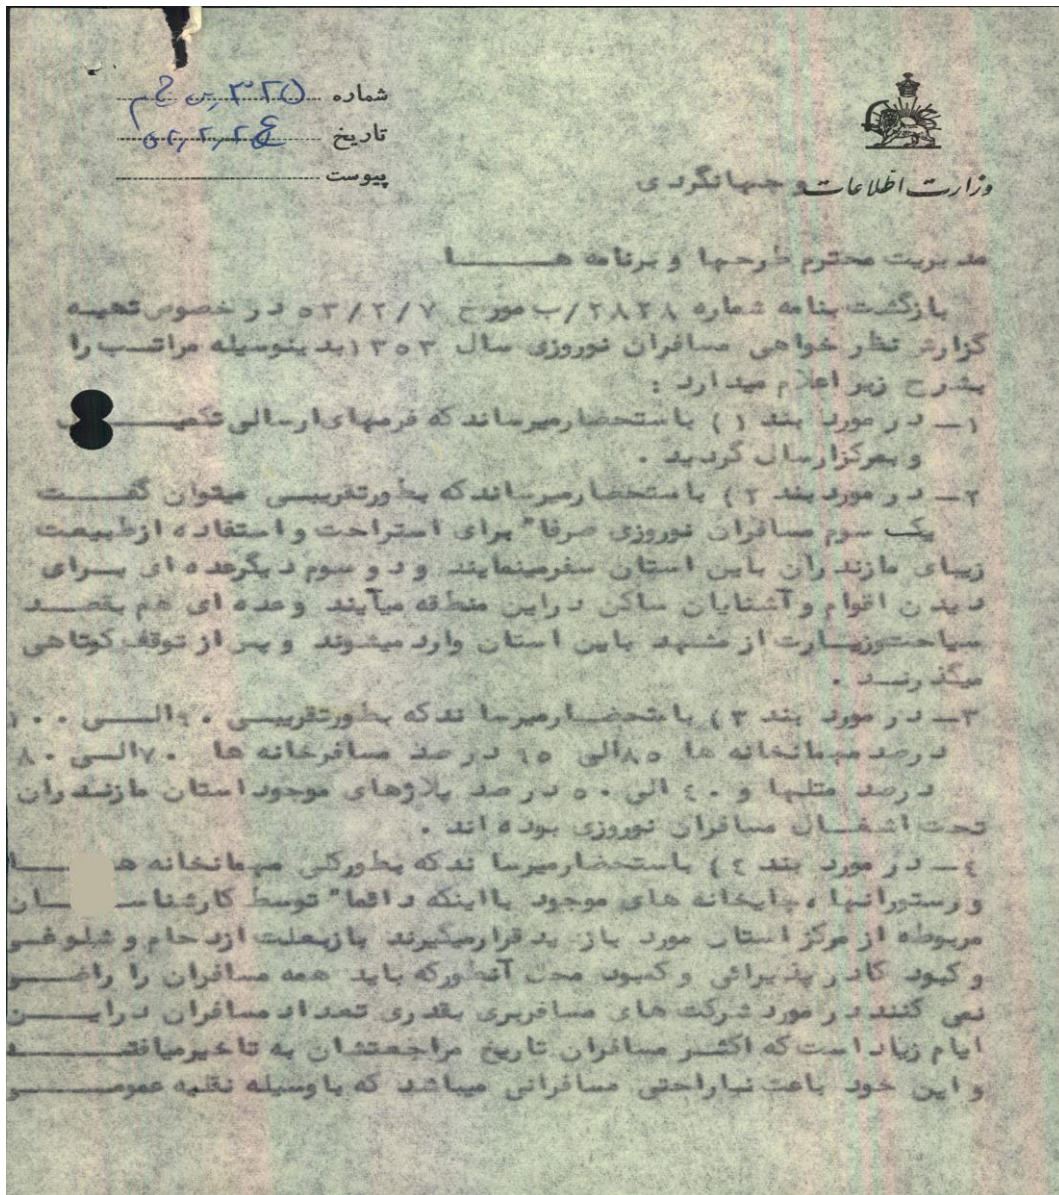 شماره
تاریخ
پیوست
وزارت اطلاعات و جهانگردی
مدیریت محترم طرحها و برنامه هـــا
بازگشت بنامه شماره ۲۸۲۸/ب مورخ ۵۳/۲/۷ در خصوص تهیـه
گزارش نظر خواهی مسافران نوروزی سال ۱۳۵۳ بدینوسیله مراتـب را
بشرح زیر اعلام میدارد :
۱ــ در مورد بند ۱) باستحضار میرساند که فرمهای ارسالی تکمیـــ
و بمرکز ارسال گردید .
۲ــ در مورد بند ۲) باستحضار میرساند که بطور تقریبـی میتوان گفــت
یک سوم مسافران نوروزی صرفا" برای استراحت و استفاده از طبیعت
زیبای مازندران باین استان سفر مینمایند و دو سوم دیگر عده ای بــرای
دیدن اقوام و آشنایان ساکن در این منطقه میآیند و عده ای هم بقصـد
سیاحت و زیــارت از مشهد باین استان وارد میشوند و پس از توقف کوتاهی
میگذرنــد .
۳ــ در مورد بند ۳) باستحضــار میرساند که بطور تقریبــی ۹۰ الــی ۱۰۰
درصد میمانخانه ها ۸۵ الی ۹۵ درصد مسافرخانه ها ۷۰ الــی ۸۰
درصد متلها و ۴۰ الی ۵۰ درصد پلاژهای موجود استان مازنــدران
تحت اشغــال مسافران نوروزی بوده اند .
۴ــ در مورد بند ۴) باستحضار میرساند که بطور کلی میمانخانه هــا
و رستورانها ، چایخانه های موجود با اینکه دائما" توسط کارشناســـان
مربوطه از مرکز استان مورد بازدید قرار میگیرند باز بعلت ازدحام و شلوغــی
و کبود کادر پذیرائی و کمبود محل آنطور که باید همه مسافران را راضــی
نمی کنند در مورد شرکت های مسافربری بقدری تعداد مسافران در ایــن
ایام زیاد است که اکثــر مسافران تاریخ مراجعتشان به تاخیر میافتـــد
و این خود باعث نــاراحتی مسافرانی میباشد که با وسیله نقلیه عمومــی